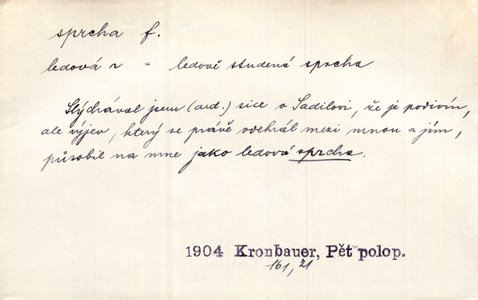 sprcha f.
ledová ~ - ledově studená sprcha
Slýchával jsem (aud.) sice o Sadilovi, že je podivín,
ale výjev, který se právě odehrál mezi mnou a jím,
působil na mne jako ledová sprcha.
1904 Kronbauer, Pět polop.
161, 21